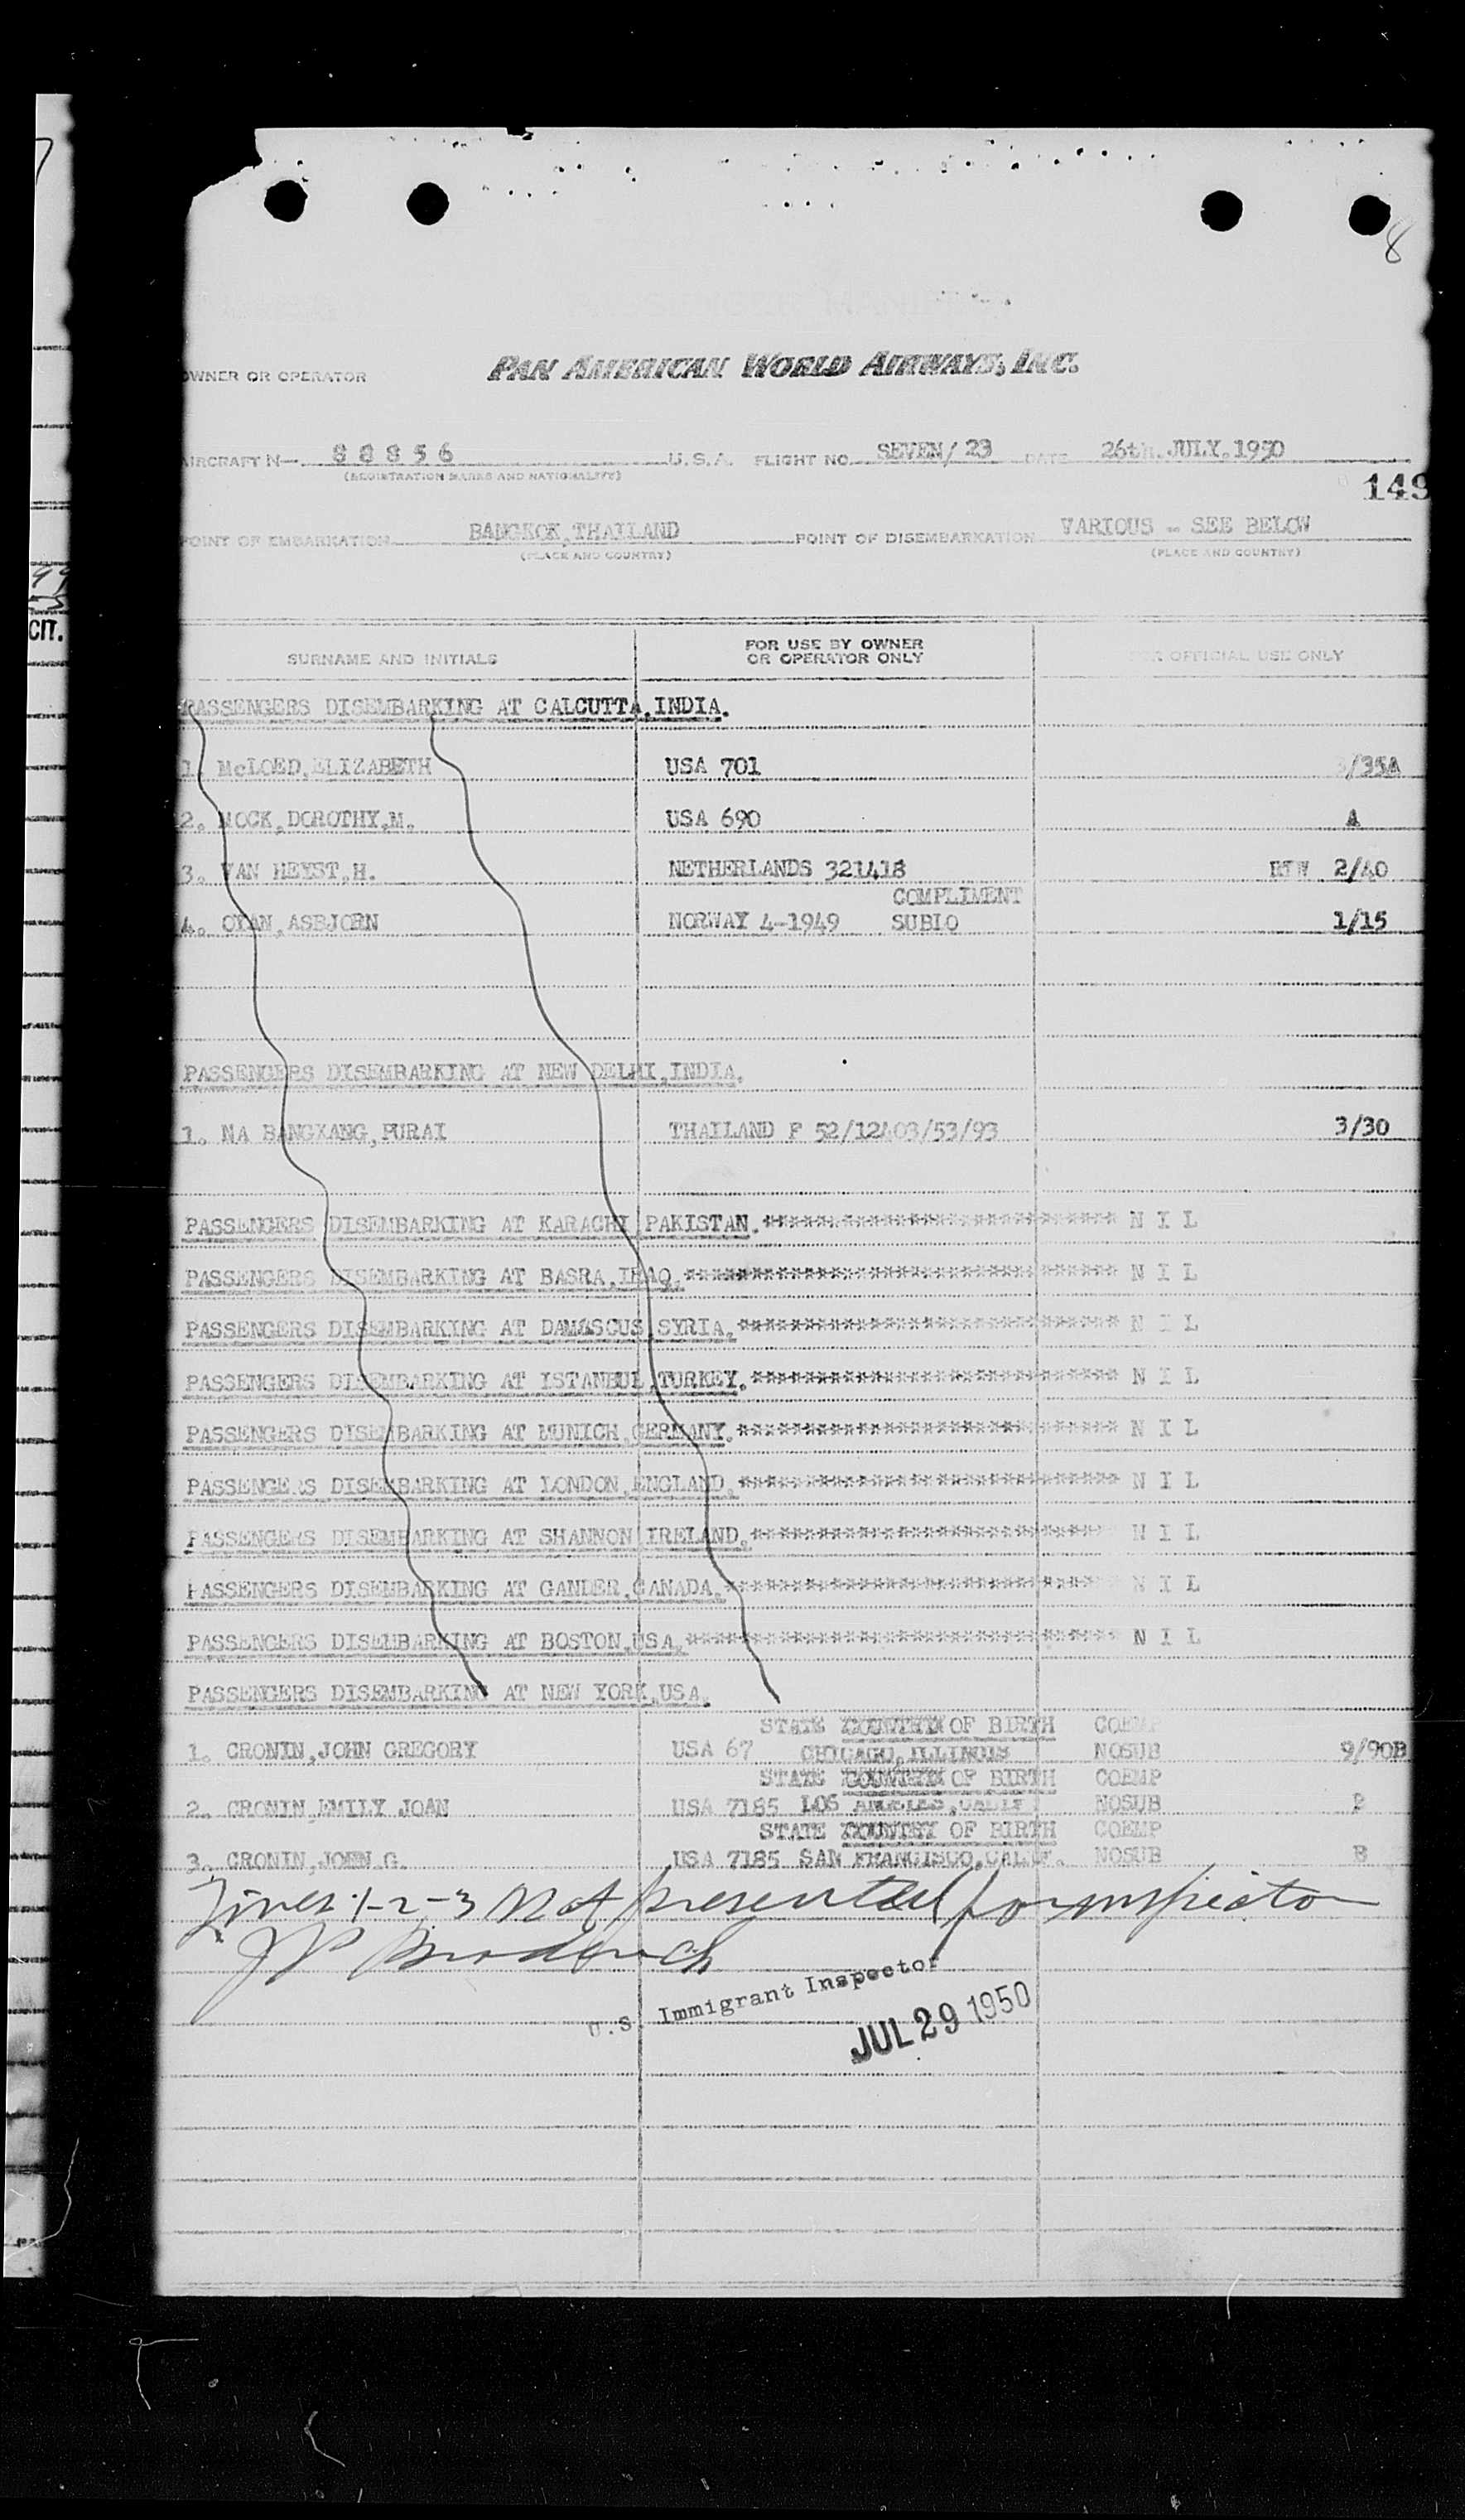 8
OWNER OR OPERATOR PAN AMERICAN WORLD AIRWAYS, INC.
AIRCRAFT N- 88856 U.S.A. FLIGHT NO. SEVEN/23 DATE 26th.JULY.1950
(REGISTRATION MARKS AND NATIONALITY)
149
POINT OF EMBARKATION BANGKOK,THAILAND POINT OF DISEMBARKATION VARIOUS - SEE BELOW
(PLACE AND COUNTRY) (PLACE AND COUNTRY)
CIT.
SURNAME AND INITIALS FOR USE BY OWNER OR OPERATOR ONLY FOR OFFICIAL USE ONLY
PASSENGERS DISEMBARKING AT CALCUTTA,INDIA.
1. McLOED,ELIZABETH USA 701 /35A
2. MOCK,DOROTHY,M. USA 690 A
3. VAN HEYST,H. NETHERLANDS 321418 RTW 2/40
COMPLIMENT
4. OYAN,ASBJORN NORWAY 4-1949 SUBLO 1/15
PASSENGERS DISEMBARKING AT NEW DELHI,INDIA.
1. NA BANGXANG,PURAI THAILAND F 52/12403/53/93 3/30
PASSENGERS DISEMBARKING AT KARACHI,PAKISTAN.*************************** N I L
PASSENGERS DISEMBARKING AT BASRA,IRAQ.********************************* N I L
PASSENGERS DISEMBARKING AT DAMASCUS,SYRIA.***************************** N I L
PASSENGERS DISEMBARKING AT ISTANBUL,TURKEY.**************************** N I L
PASSENGERS DISEMBARKING AT MUNICH,GERMANY.***************************** N I L
PASSENGERS DISEMBARKING AT LONDON,ENGLAND.***************************** N I L
PASSENGERS DISEMBARKING AT SHANNON,IRELAND.*************************** N I L
PASSENGERS DISEMBARKING AT GANDER,CANADA.***************************** N I L
PASSENGERS DISEMBARKING AT BOSTON,USA.********************************* N I L
PASSENGERS DISEMBARKING AT NEW YORK,USA.
STATE COUNTRY OF BIRTH COEMP
1. CRONIN,JOHN GREGORY USA 67 CHICAGO,ILLINOIS NOSUB 9/90B
STATE COUNTRY OF BIRTH COEMP
2. CRONIN,EMILY JOAN USA 7185 LOS ANGELES,CALIF. NOSUB B
STATE COUNTRY OF BIRTH COEMP
3. CRONIN,JOHN G. USA 7185 SAN FRANCISCO,CALIF. NOSUB B
Lines 1-2-3 Not presented for inspection
U.S. Immigrant Inspector
JUL 29 1950